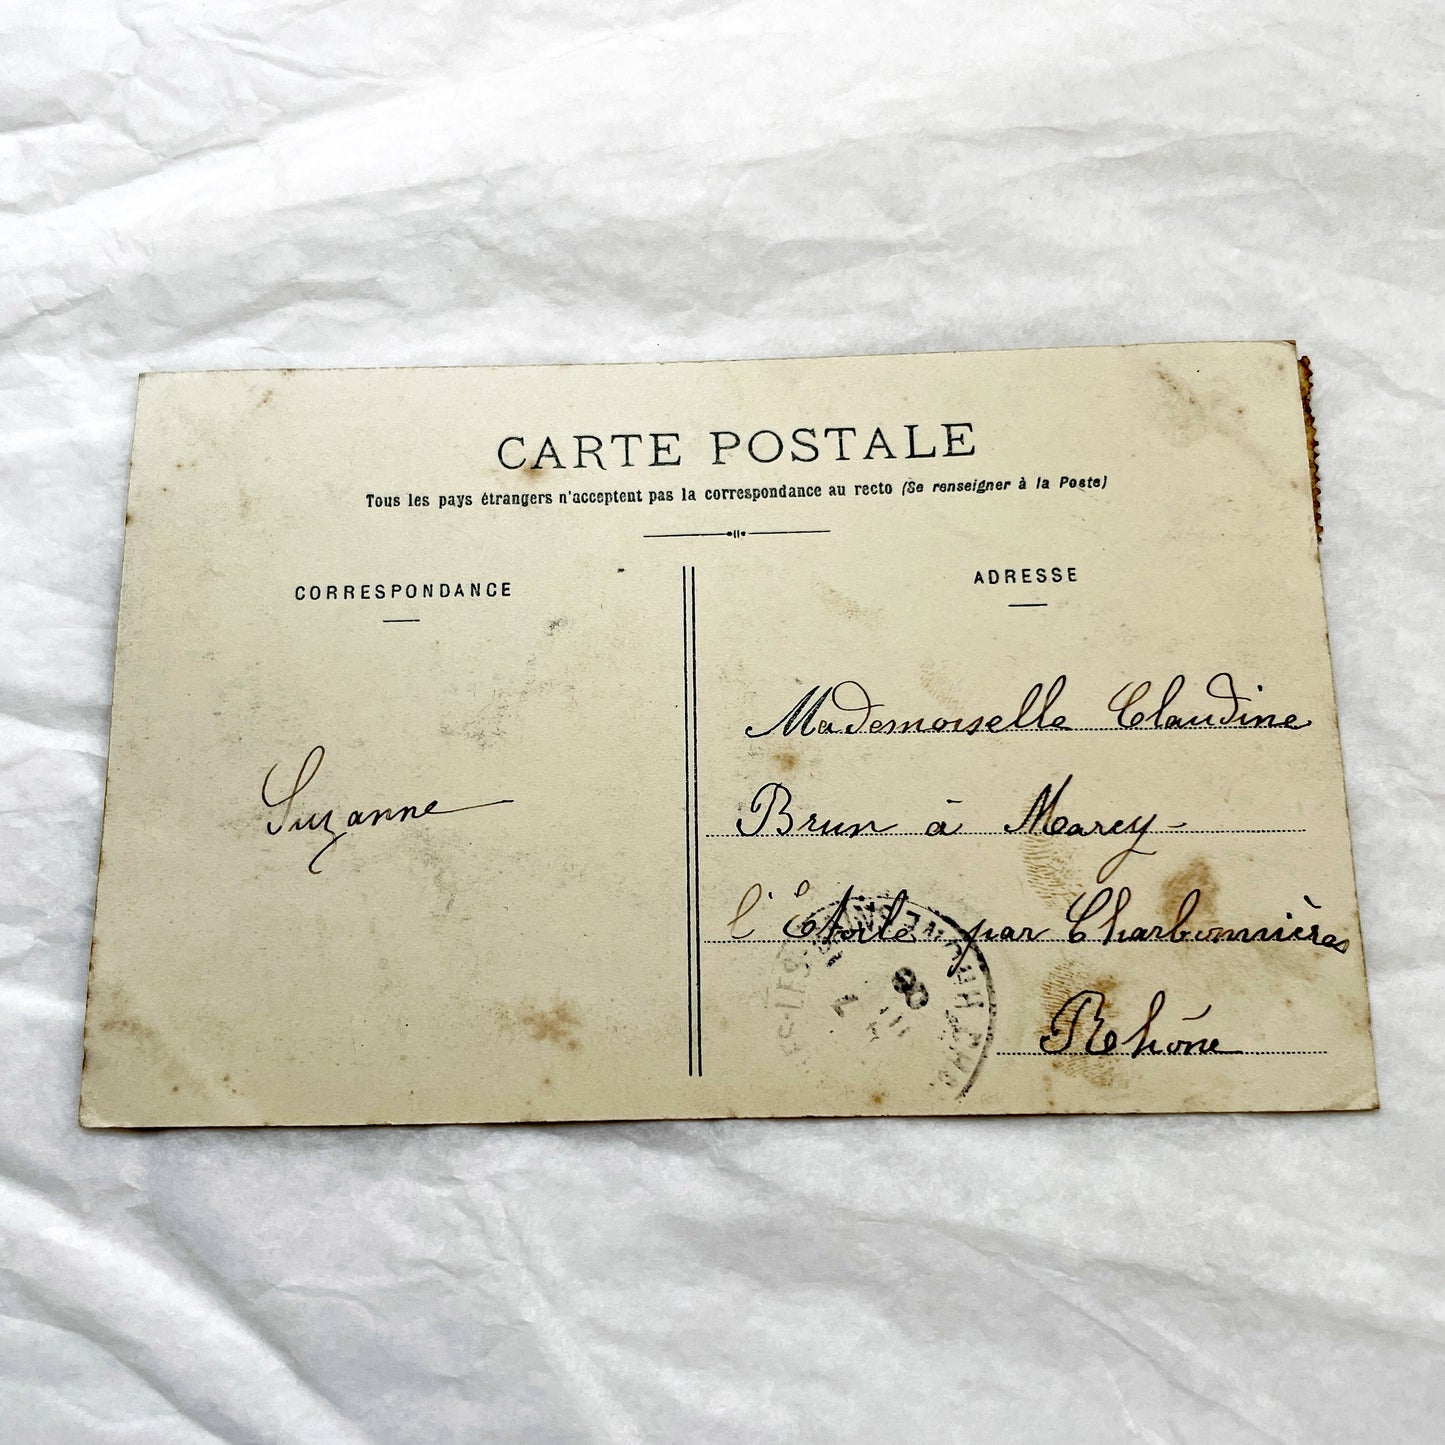 CARTE POSTALE
Tous les pays étrangers n'acceptent pas la correspondance au recto (Se renseigner à la Poste)
CORRESPONDANCE
ADRESSE
Suzanne
Mademoiselle Claudine
Brun à Marcy-
l'Étoile par Charbonnières
Rhône